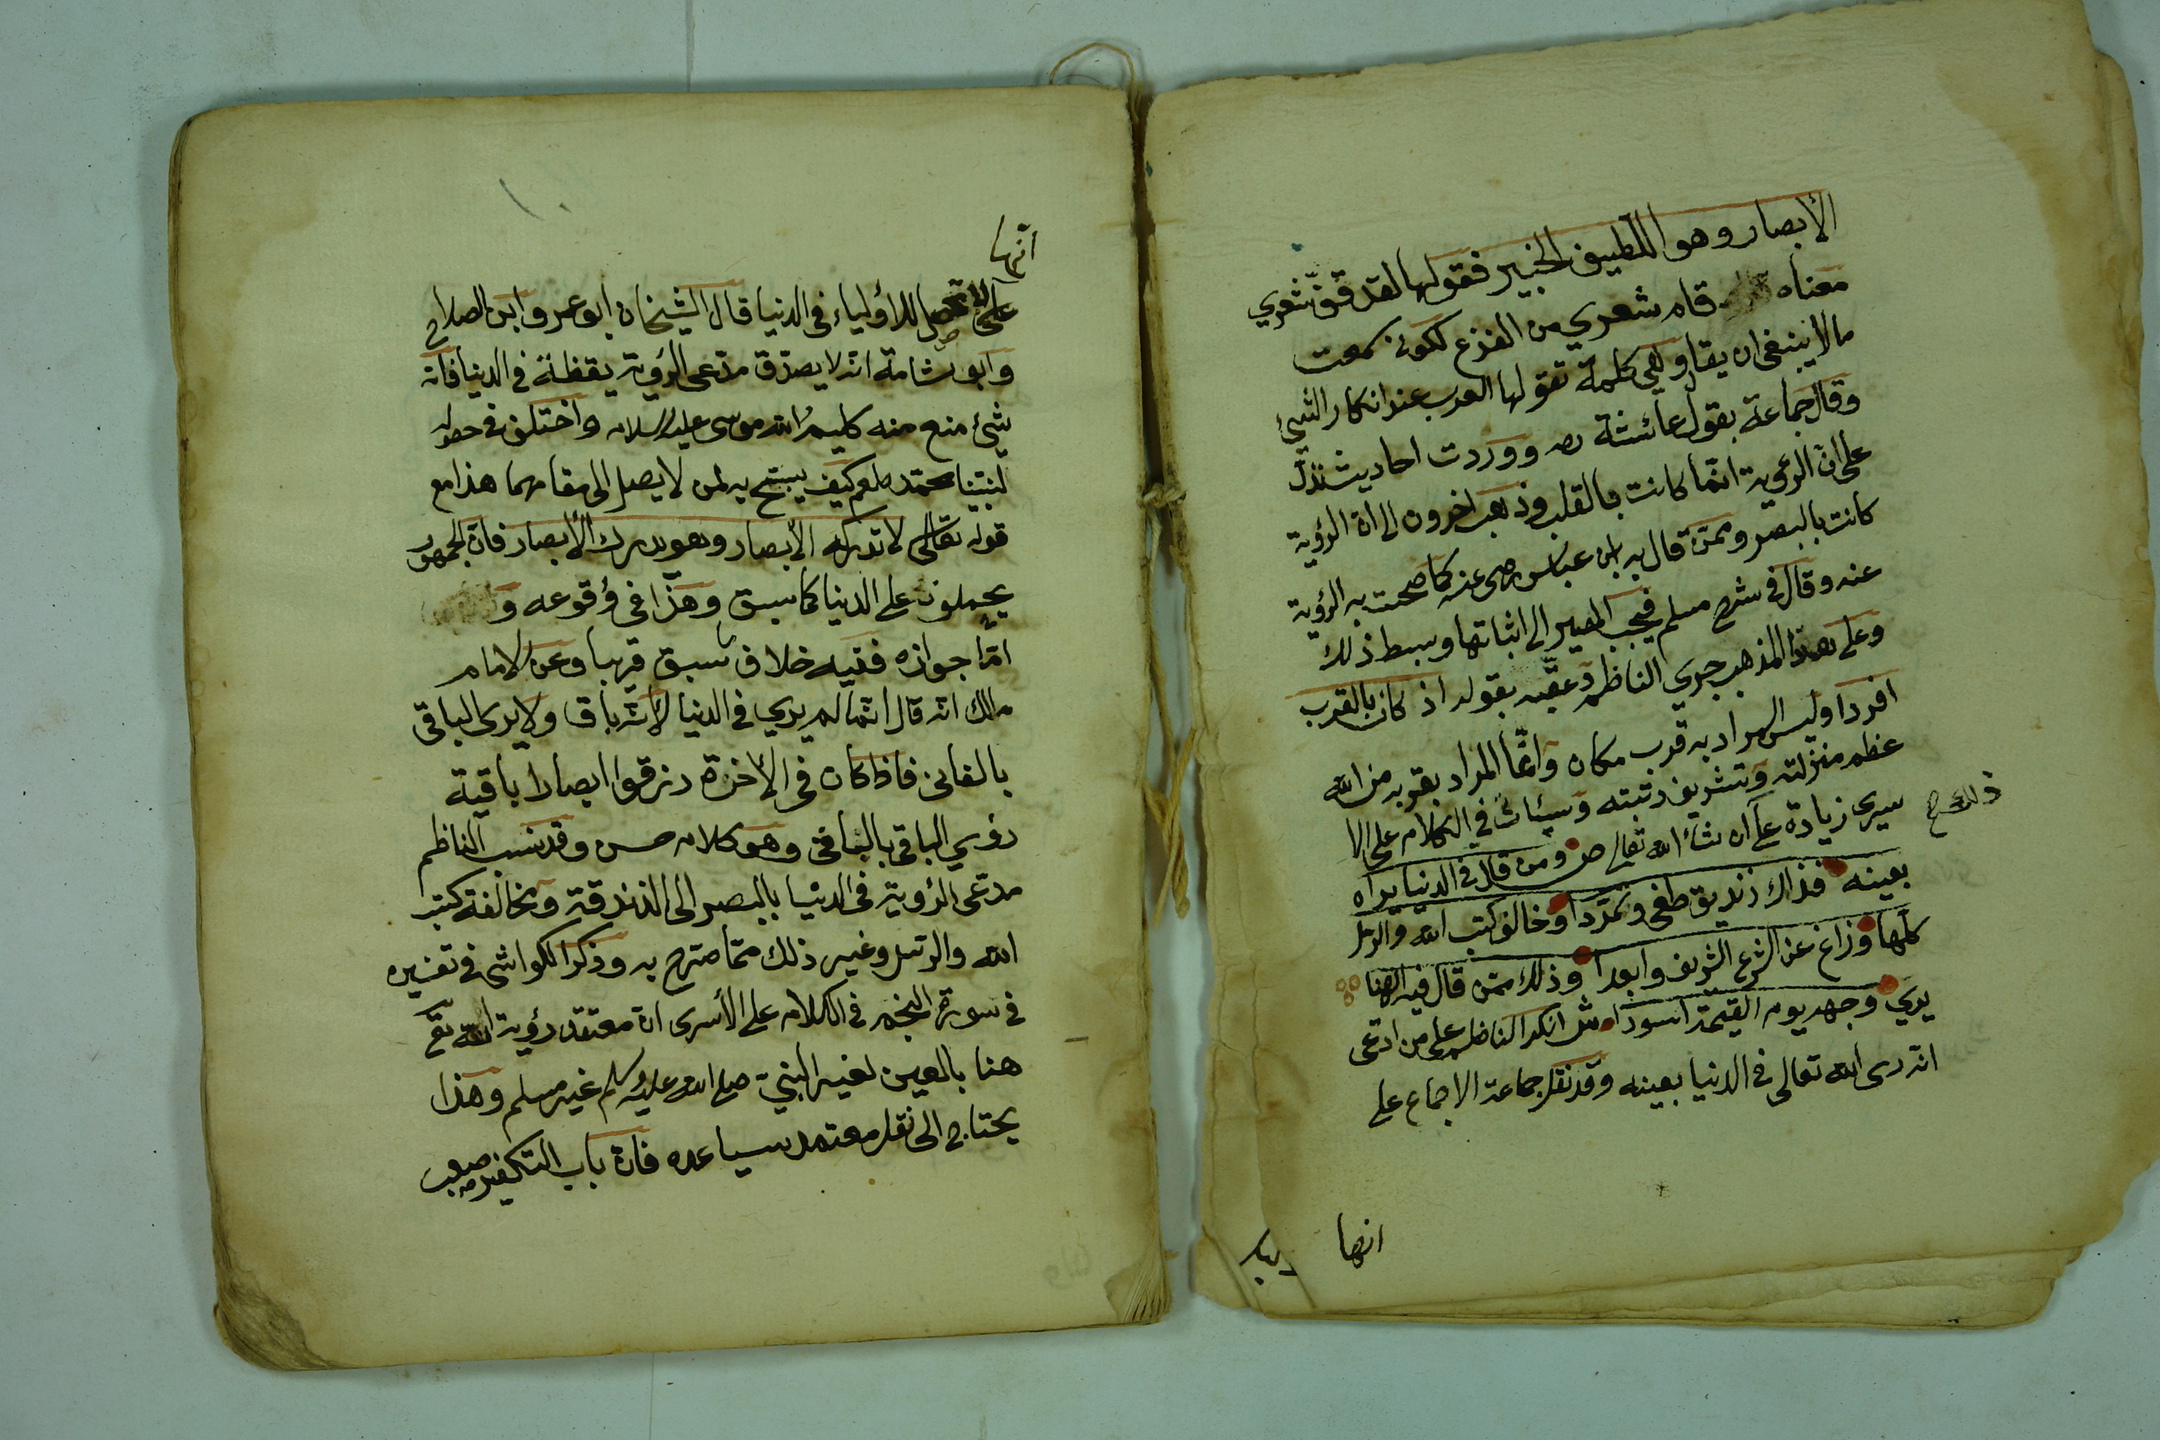 الأبصار وهو اللطيف الخبير فقولها لقد قفّ شعري
معناه قام شعري من الفزع لكونى سمعت
مالا ينبغى ان يقال وهي كلمة تقولها العرب عند انكار الشئ
وقال جماعة بقول عائشة رضه ووردت احاديث تدلّ
على انّ الرءوية انّما كانت بالقلب وذهب اخرون الى ان الرؤية
كانت بالبصر وممّن قال به ابن عباس رضى عنه كما صحت به الرؤية
عنه وقال فى شرح مسلم فيجب المصير الى اثباتها وبسط ذلك
وعلى هذا المذهب جري الناظم وعقّبه بقوله اذ كان بالقرب
افردا وليس المراد به قرب مكان وانّما المراد بقربه من الله
عظم منزلته وتشريف رتبته وسيئاتى في الكلام على الا
سرى زيادة على ان شاء الله تعالى ص ومن قال فى الدنيا يراه
ذلك صح
بعينه فذاك زنديق طغى وتمرّدا وخالف كتب الله والرسل
كلها وزاغ عن الشرع الشريف وابعدا وذلك ممّن قال فيه الهنا
يري وجهه يوم القيمة اسودا ش انكر الناظم على من ادعى
انّه رى الله تعالى فى الدنيا بعينه وقد نقل جماعة الاجماع على
انها
انّها
على انها لا تحصل للاولياء فى الدنيا قال الشيخان ابو عمرو ابن الصلاح
وابو شامة انّه لا يصدّق مدّعى الرؤية يقظة فى الدنيا فانّه
شئ منع منه كليم الله موسى عليه السلام واختلف فى حصوله
لنبيّنا محمّد صلعم كيف يسمح به لمن لا يصل الى مقامهما هذا مع
قوله تعالى لا تدركه الأبصار وهو يدرك الأبصار فانّ الجمهور
يحملونه على الدنيا كما سبق وهذا فى وقوعه و
امّا جوازه ففيه خلاف سبق قريبا وعن الامام
مالك انّه قال انّما لم يري فى الدنيا لأنّه باق ولا يرى الباقى
بالفانى فاذا كان فى الاخرة ورزقوا ابصارا باقية
رؤي الباقى بالباقى وهو كلام حسن وقد نسب الناظم
مدّعى الرؤية فى الدنيا بالبصر الى الزندقة ومخالفة كتب
الله والرسل وغير ذلك ممّا صرّح به وذكر الكواشى فى تفسيره
فى سورة النجم فى الكلام على الأسرى ان معتقد رؤية الله تعّ
هنا بالعين لغير النبيّ صلى الله عليه وسلم غير مسلم وهذا
يحتاج الى نقل معتمد سيساعده فانّ باب التكفير صعب